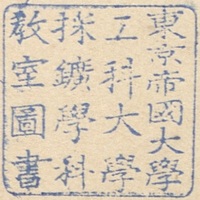 東京帝國大學
工科大學
採鑛學科
教室圖書